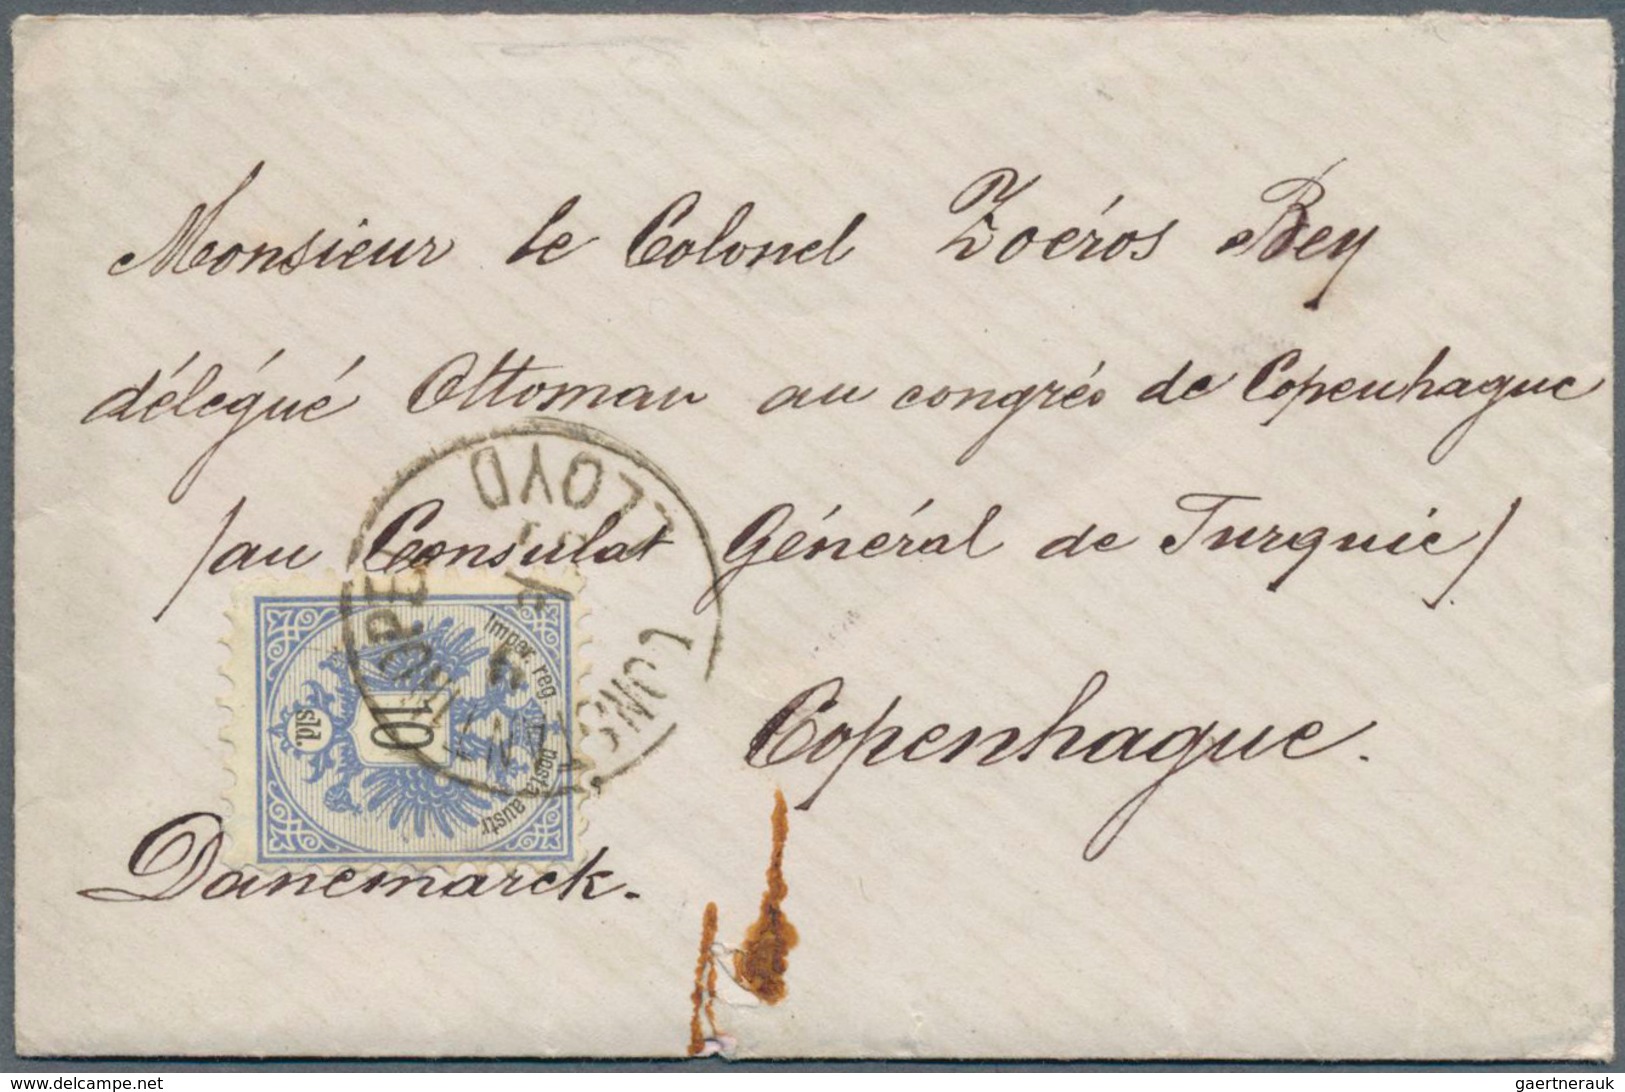 Monsieur le Colonel Zoéros Bey
délégué Ottoman au congrés de Copenhague
/au Consulat Général de Turquie/
Copenhague.
Danemarck.
LLOYD
Imper. reg. posta austr
10
sld.
www.delcampe.net
gaertnerauk